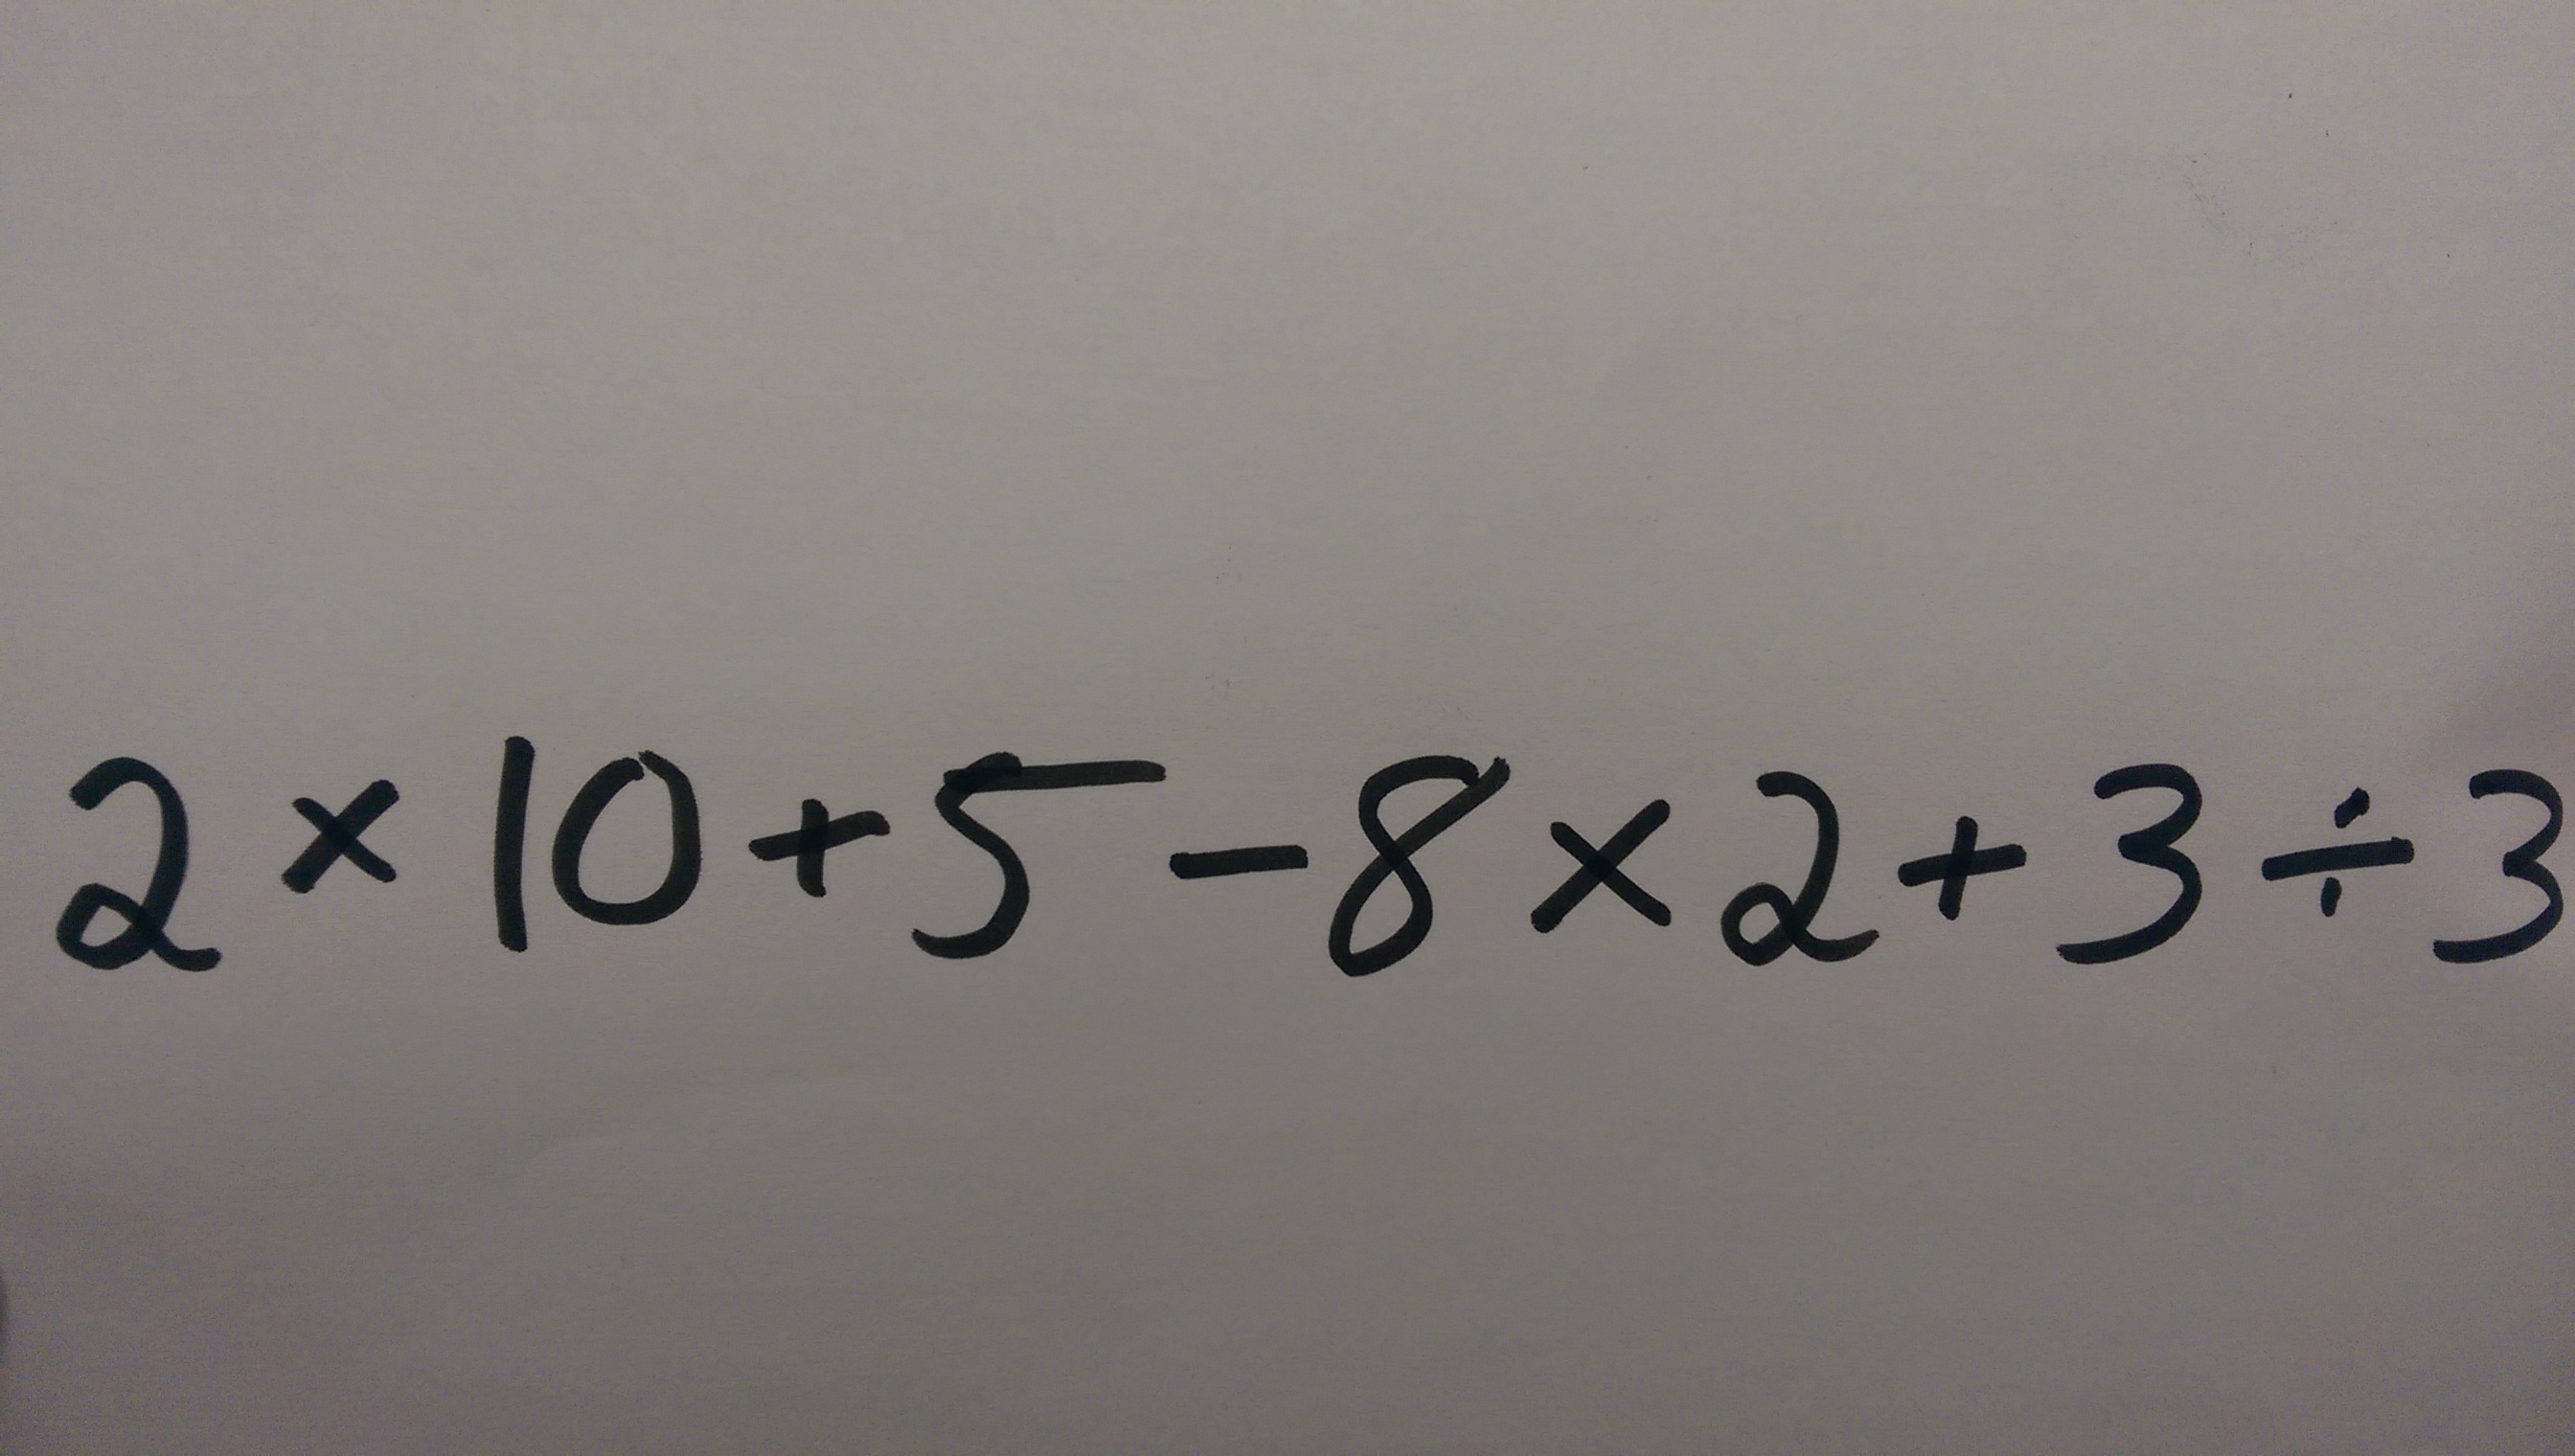 2 × 10 + 5 - 8 × 2 + 3 ÷ 3